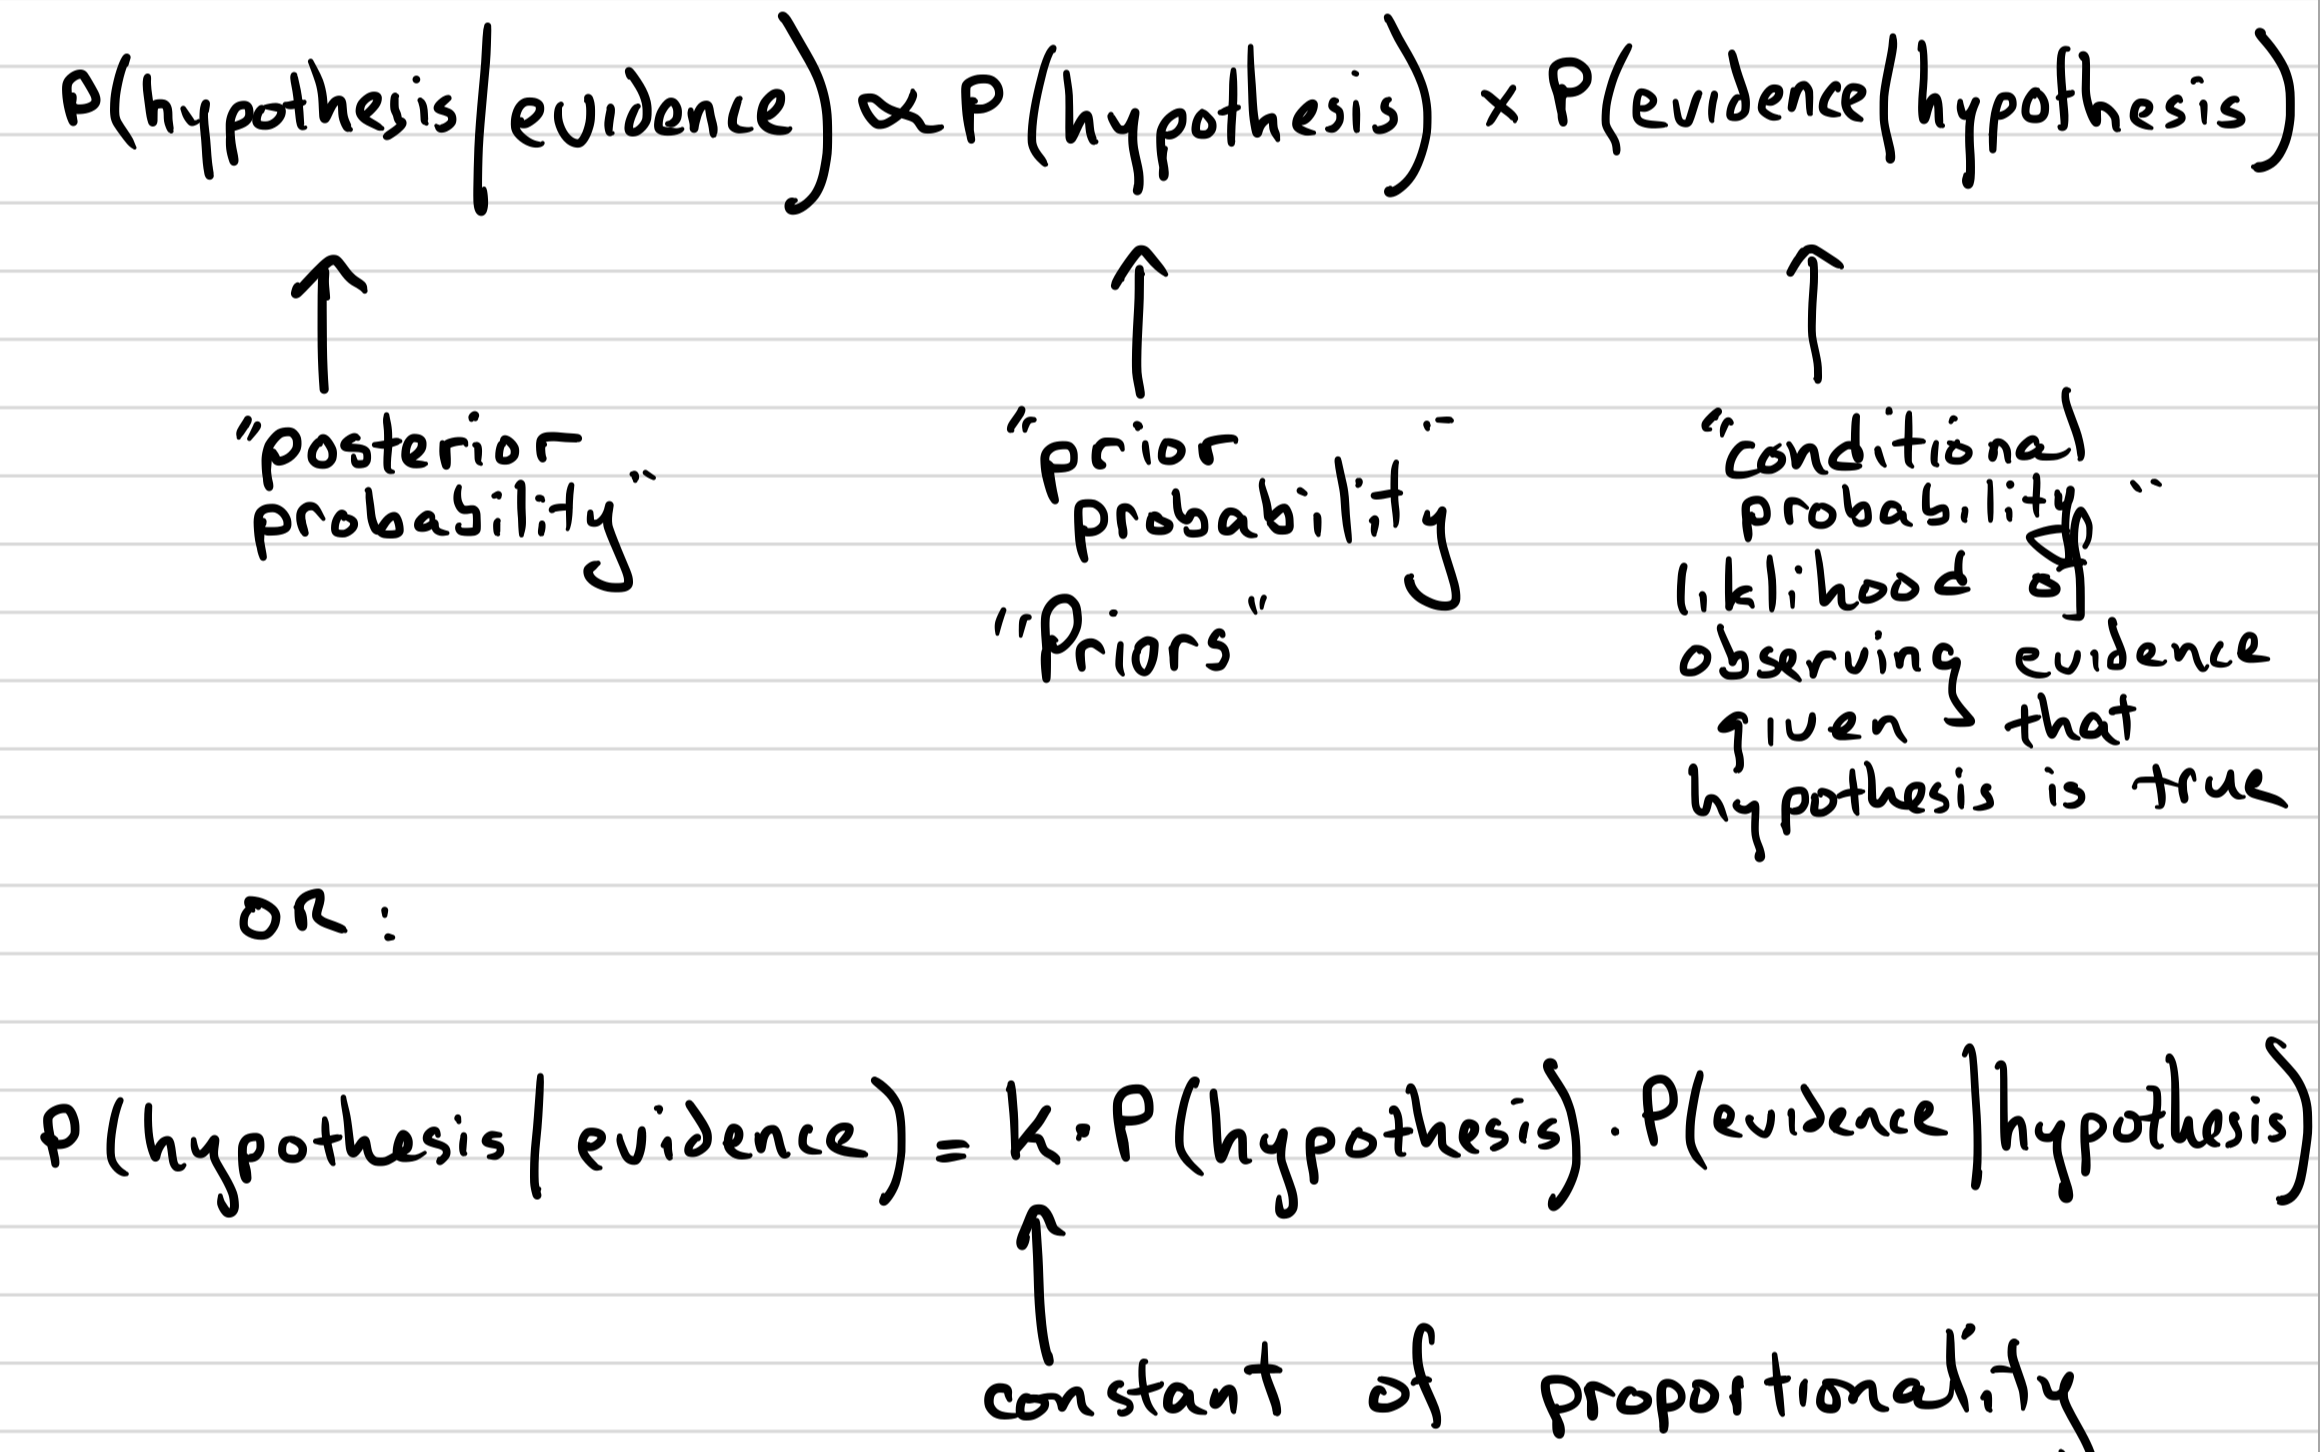 P(hypothesis | evidence) ∝ P(hypothesis) × P(evidence | hypothesis)
"posterior
probability"
"prior
probability"
"Priors"
"conditional
probability"
liklihood of
observing evidence
given that
hypothesis is true
OR:
P(hypothesis | evidence) = k · P(hypothesis) · P(evidence | hypothesis)
constant of proportionality